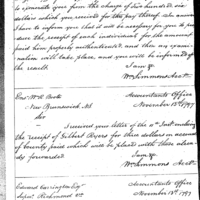 from the charge of two hundred six
dollars which you receited for the pay thereof. In answer
I have to inform you that it will be necessary for you to pro-
duce the receipt of each individual for the amount
paid them properly authenticated, and then an exami-
nation will take place, and you will be informed of
the result.
I am &c
Wm Simmons Acct.
Wm
New Brunswick NJ
Accountants Office
November 13th 1797
Sir
I received your letter of the 10th Inst. enclosing
the receipt of Gilbert Byers for three dollars on account
of bounty paid which will be placed with those alrea-
dy forwarded
I am &c
Wm Simmons Acct.
Edward Carrington Esqr
Supr. Richmond Va
Accountants Office
Novemr. 13th 1797